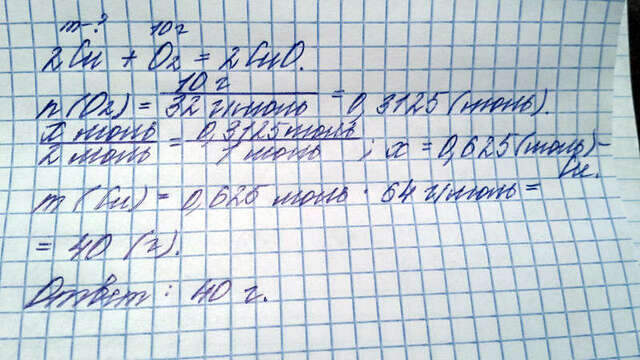 m-? 10 г
2Cu + O₂ = 2CuO.
n(O₂) = 10 г / 32 г/моль = 0,3125 (моль).
x моль / 2 моль = 0,3125 моль / 1 моль ; x = 0,625 (моль) -
Cu.
m(Cu) = 0,625 моль · 64 г/моль =
= 40 (г).
Ответ: 40 г.